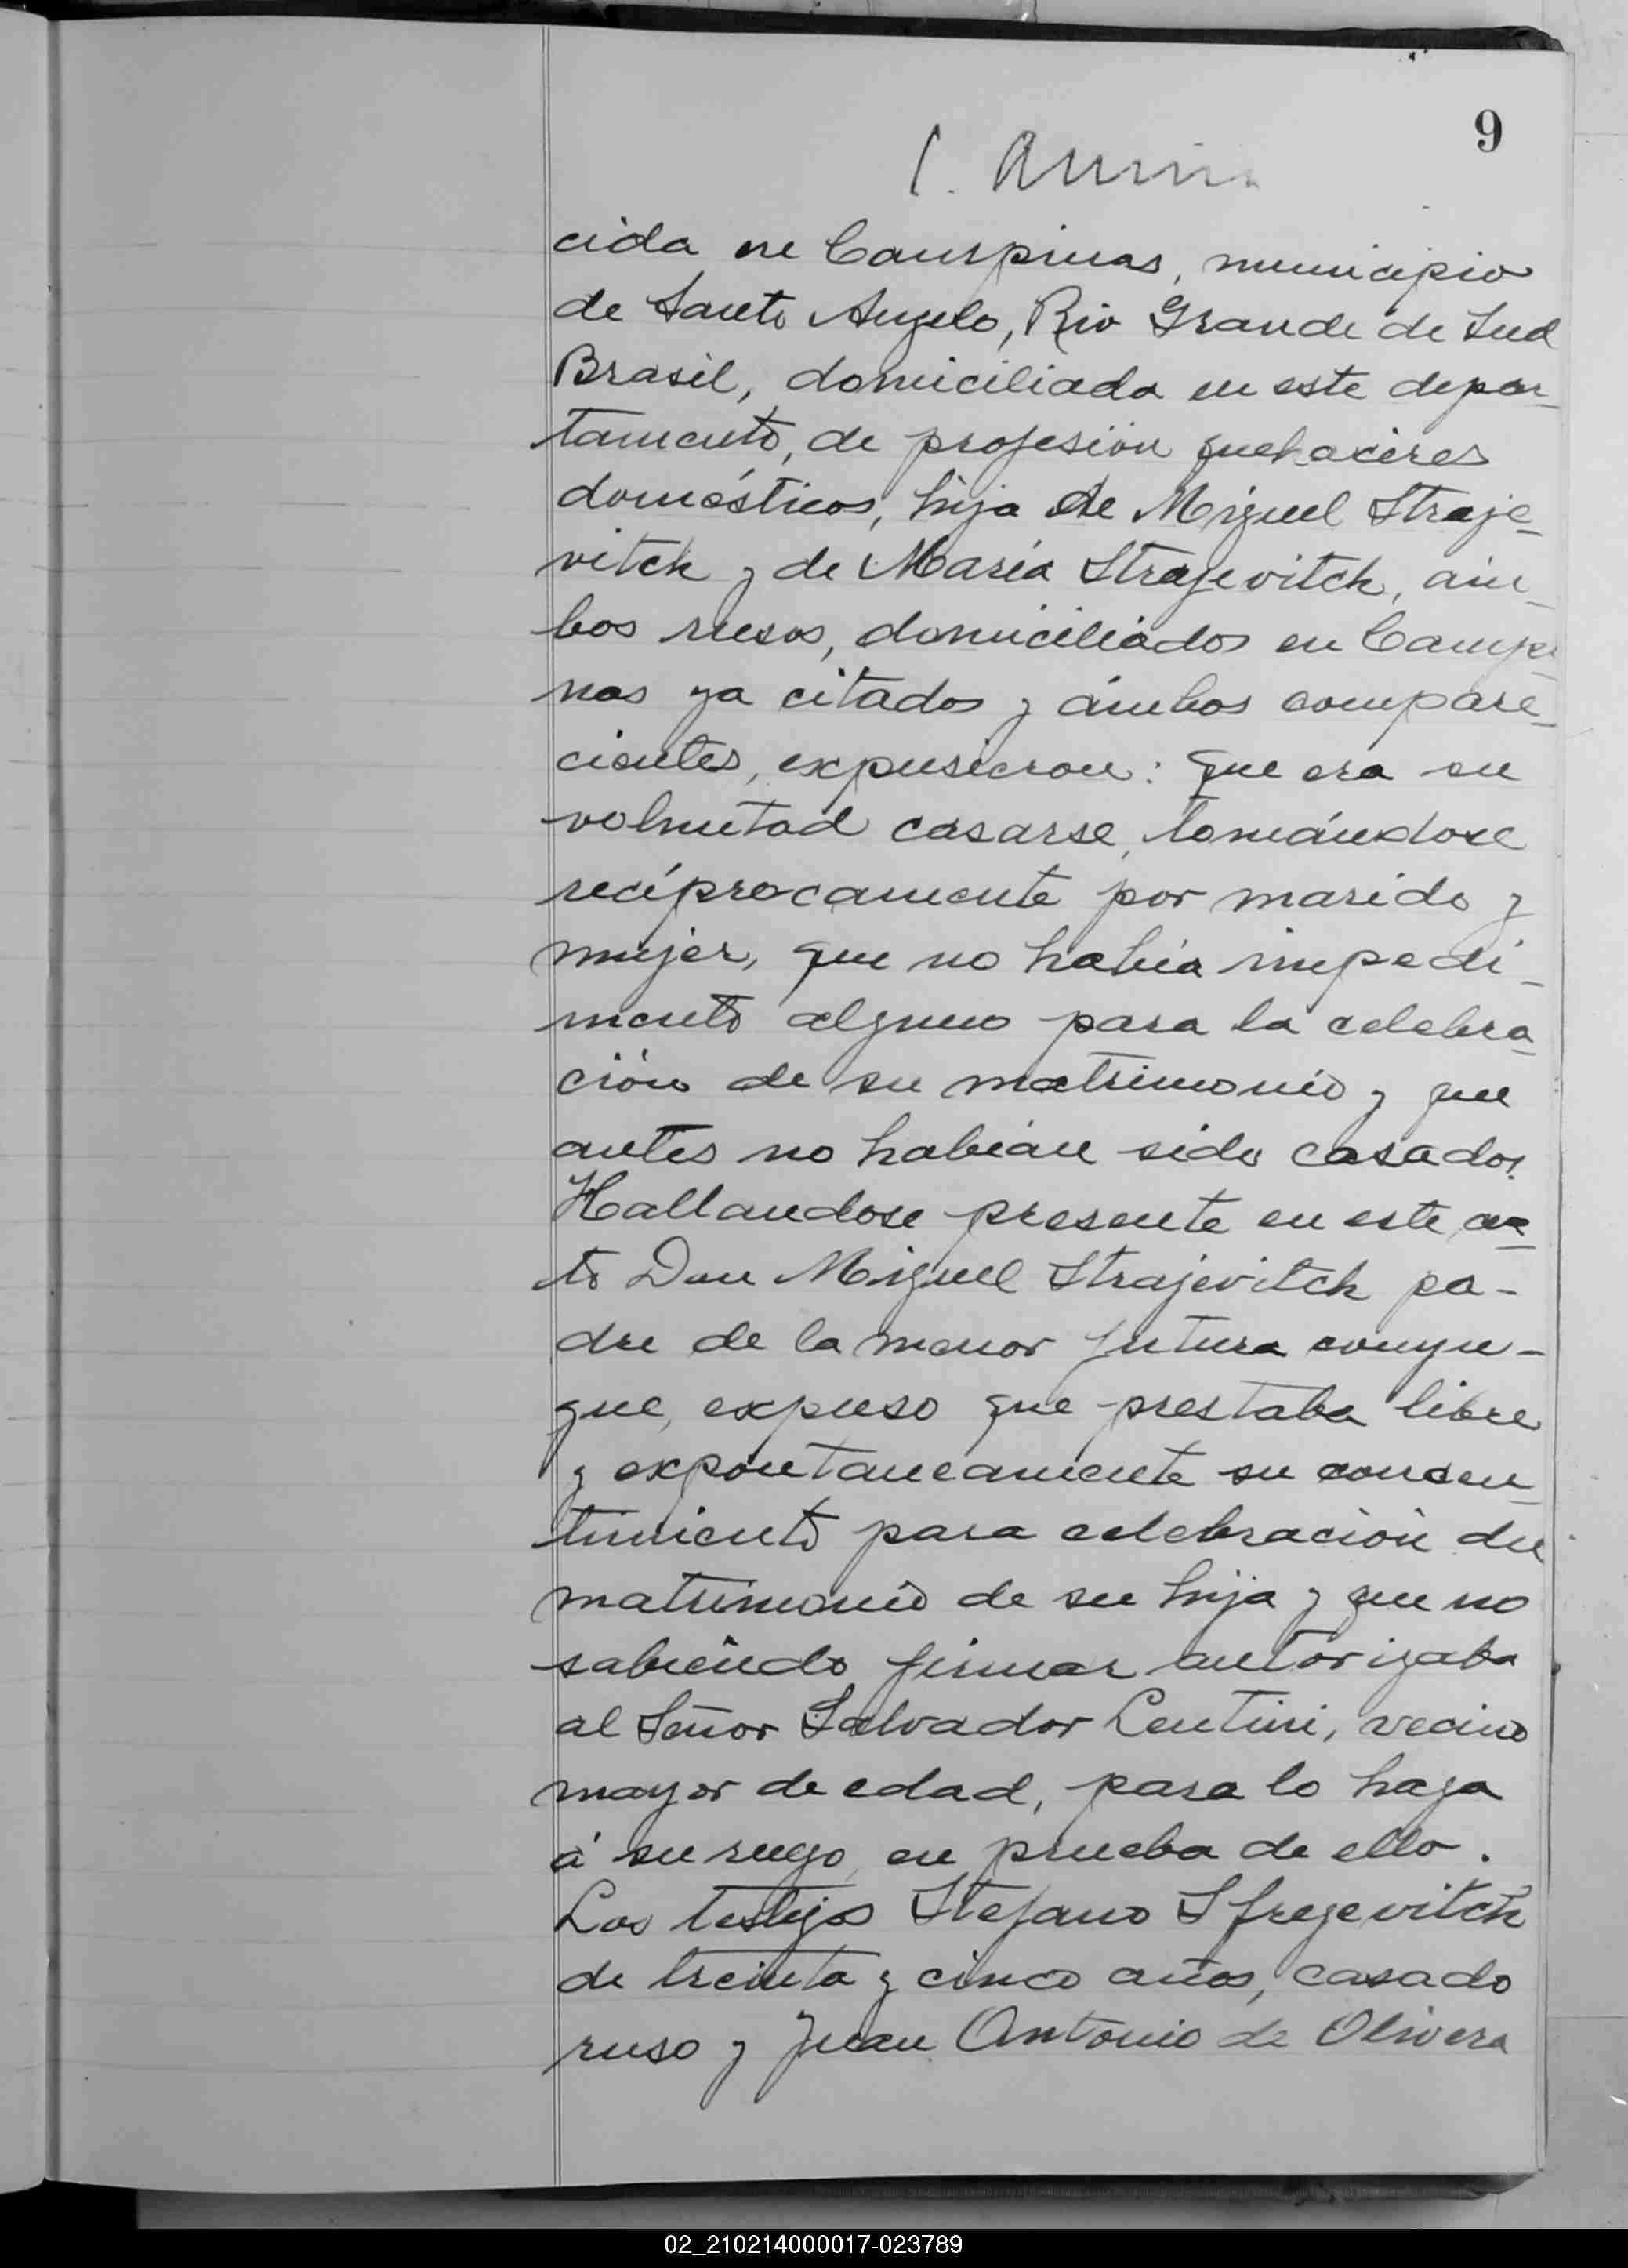 9
cida en Campinas, municipio
de Santo Angelo, Rio Grande de Sud
Brasil, domiciliada en este depar-
tamento, de profesión quehaceres
domésticos, hija de Miguel Straje-
vitch y de María Strajevitch, am-
bos rusos, domiciliados en Campi
nas ya citados y ámbos compare-
cientes, expusieron: que era su
voluntad casarse, tomándose
recíprocamente por marido y
mujer, que no había impedi-
mento alguno para la celebra-
ción de su matrimonio y que
antes no habían sido casados.
Hallandose presente en este ac-
to Don Miguel Strajevitch pa-
dre de la menor futura conyu-
gue, expuso que prestaba libre
y expontaneamente su consen-
timiento para celebración del
matrimonio de su hija y que no
sabiendo firmar autorizaba
al Señor Salvador Lentini, vecino
mayor de edad, para lo haga
á su ruego, en prueba de ello.
Los testigos Stefano Sfregevitch
de treinta y cinco años, casado
ruso y Juan Antonio de Olivera
02_210214000017-023789